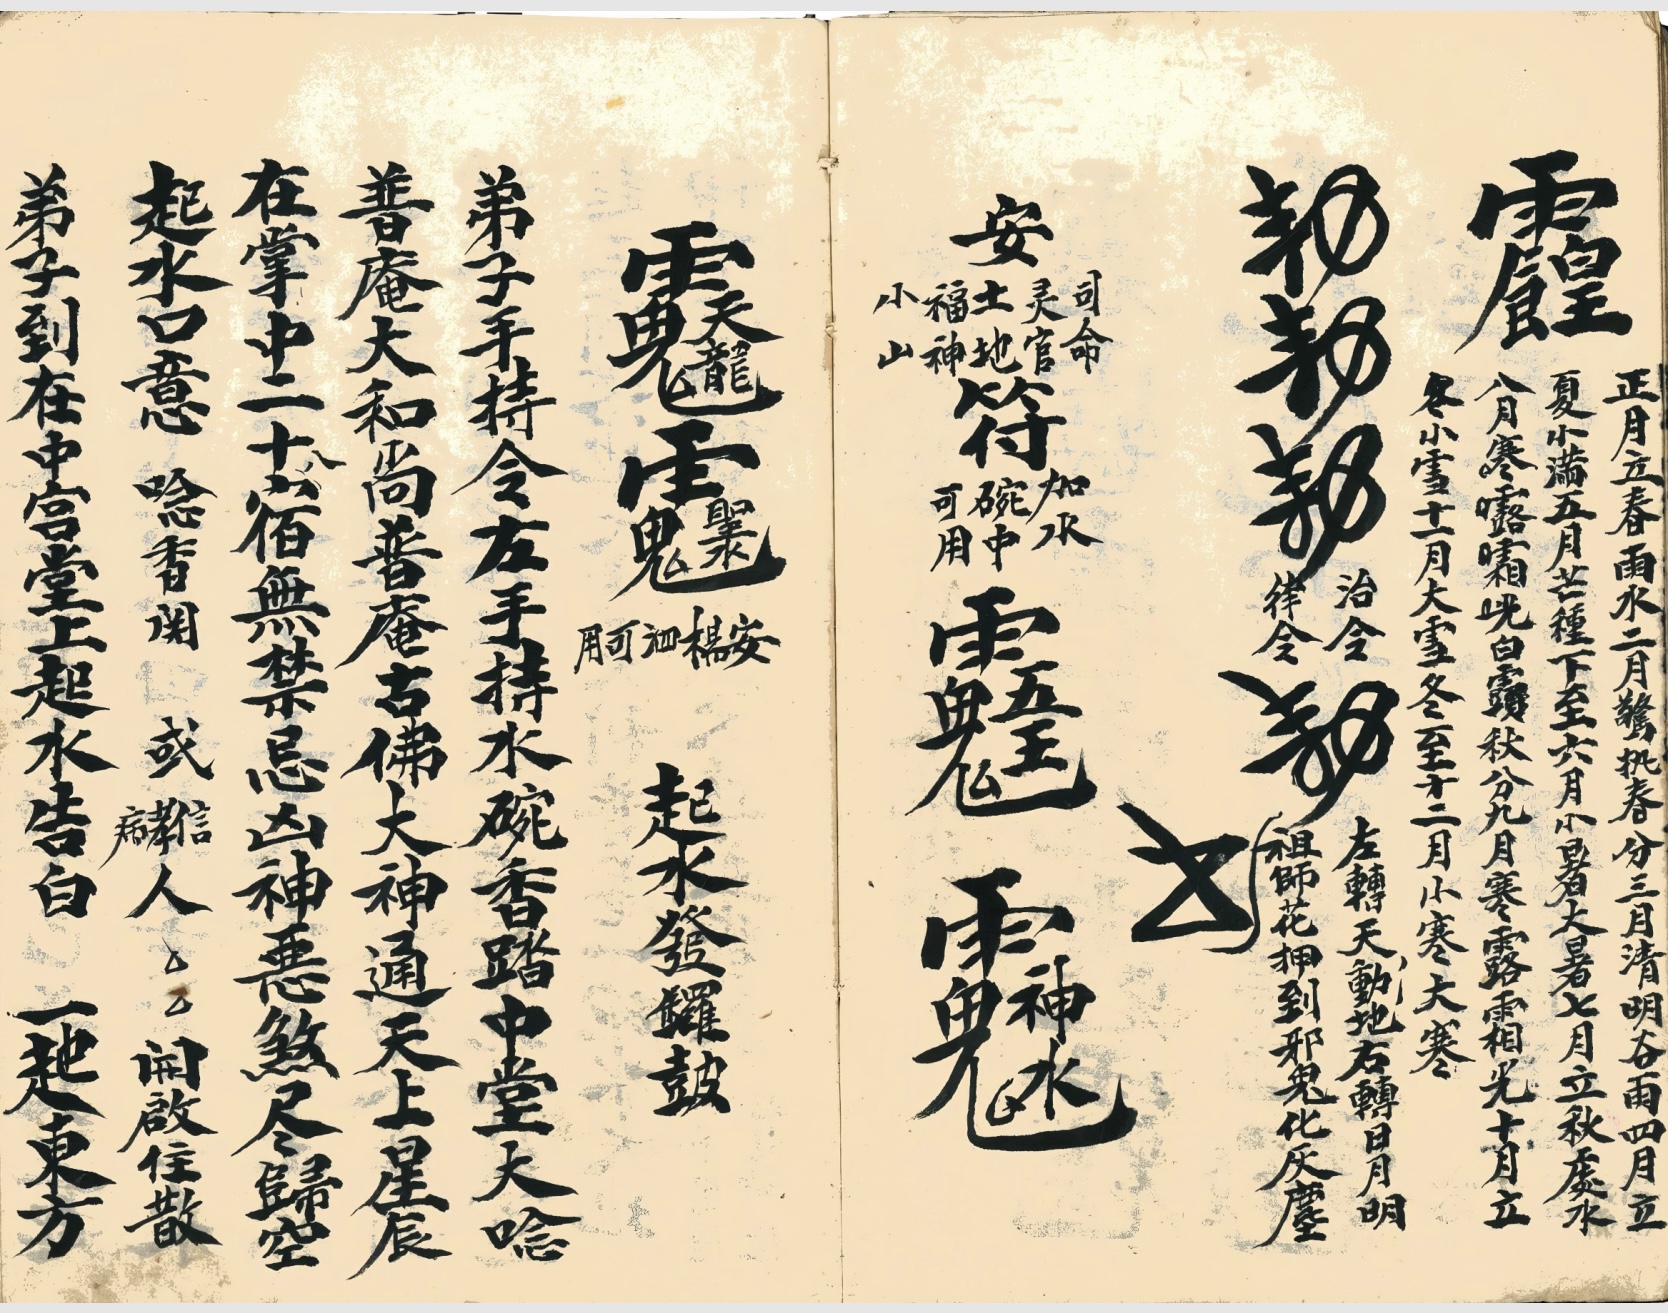 正月立春雨水二月驚执春分三月清明谷雨四月立
夏小满五月芒種下至六月小暑大暑七月立秋處水
八月寒露霜晄白露秋分九月寒露霜相光十月立
冬小雪十一月大雪冬至十二月小寒大寒
勅勅勅
治令
律令
勅
左轉天動地右轉日月明
祖師花押到邪鬼化灰塵
安
司命
灵官
土地
福神
小山
符
加水
碗中
可用
安楊泗可用
起水發鑼鼓
弟子手持令左手持水碗香踏中堂大唸
普庵大和尚普庵古佛大神通天上星辰
在掌中二十八宿無禁忌凶神惡煞尽歸空
起水口意 唸香関 或 信 孝 病 人 開啟住散
弟子到在中宮堂上起水告白 一起東方